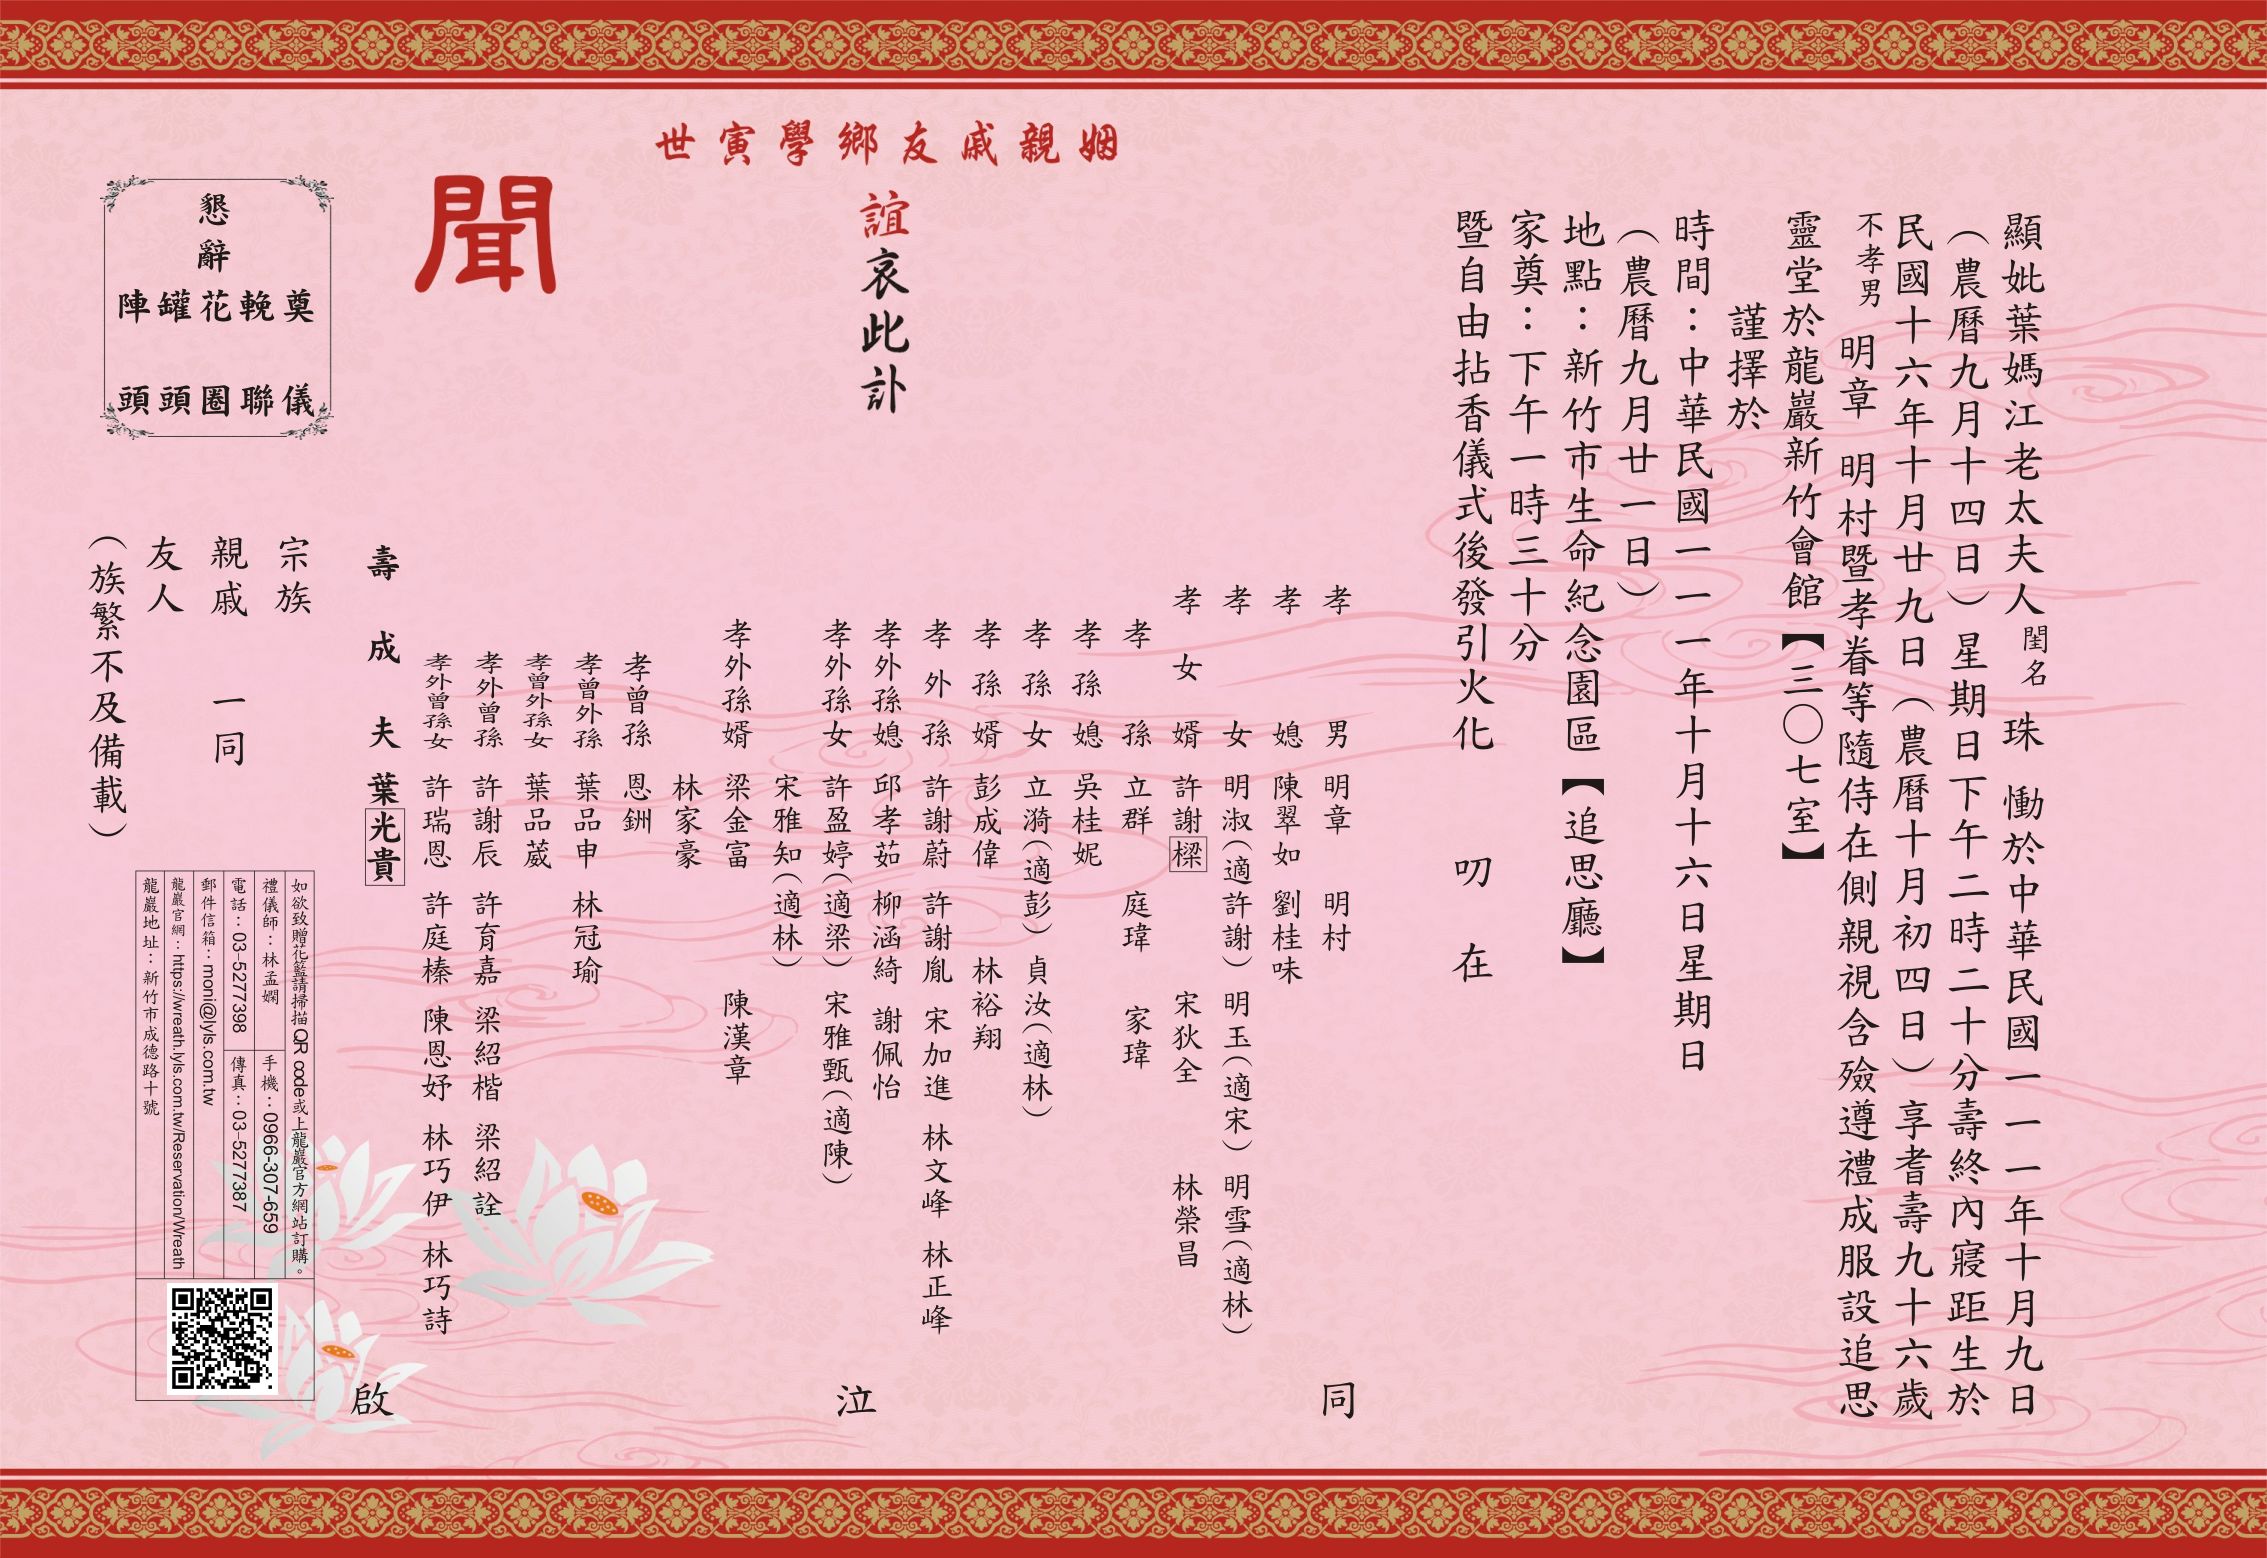 顯妣葉媽江老太夫人閨名 珠 慟於中華民國一一一年十月九日
（農曆九月十四日）星期日下午二時二十分壽終內寢距生於
民國十六年十月廿九日（農曆十月初四日）享耆壽九十六歲
不孝男 明章 明村暨孝眷等隨侍在側親視含殮遵禮成服設追思
靈堂於龍巖新竹會館【三〇七室】
謹擇於
時間：中華民國一一一年十月十六日星期日
（農曆九月廿一日）
地點：新竹市生命紀念園區【追思廳】
家奠：下午一時三十分
暨自由拈香儀式後發引火化 叨 在
姻親戚友鄉學寅世
誼哀此訃
聞
孝男 明章 明村
孝媳 陳翠如 劉桂味
孝女 明淑（適許謝） 明玉（適宋） 明雪（適林）
孝女婿 許謝樑 宋狄全 林榮昌
孝孫 立群 庭瑋 家瑋
孝孫媳 吳桂妮
孝孫女 立漪（適彭） 貞汝（適林）
孝孫婿 彭成偉 林裕翔
孝外孫 許謝蔚 許謝胤 宋加進 林文峰 林正峰
孝外孫媳 邱孝茹 柳涵綺 謝佩怡
孝外孫女 許盈婷（適梁） 宋雅甄（適陳）
宋雅知（適林）
孝外孫婿 梁金富 陳漢章
林家豪
孝曾孫 恩銂
孝曾外孫 葉品申 林冠瑜
孝曾外孫女 葉品葳
孝外曾孫 許謝辰 許育嘉 梁紹楷 梁紹詮
孝外曾孫女 許瑞恩 許庭榛 陳恩妤 林巧伊 林巧詩
壽成夫 葉光貴
同 泣 啟
宗族
親戚 一同
友人
（族繁不及備載）
懇辭
奠儀
輓聯
花圈
罐頭
陣頭
如欲致贈花籃請掃描QR code或上龍巖官方網站訂購。
禮儀師：林孟嫻 手機：0966-307-659
電話：03-5277398 傳真：03-5277387
郵件信箱：moni@lyls.com.tw
龍巖官網：https://wreath.lyls.com.tw/Reservation/Wreath
龍巖地址：新竹市成德路十號